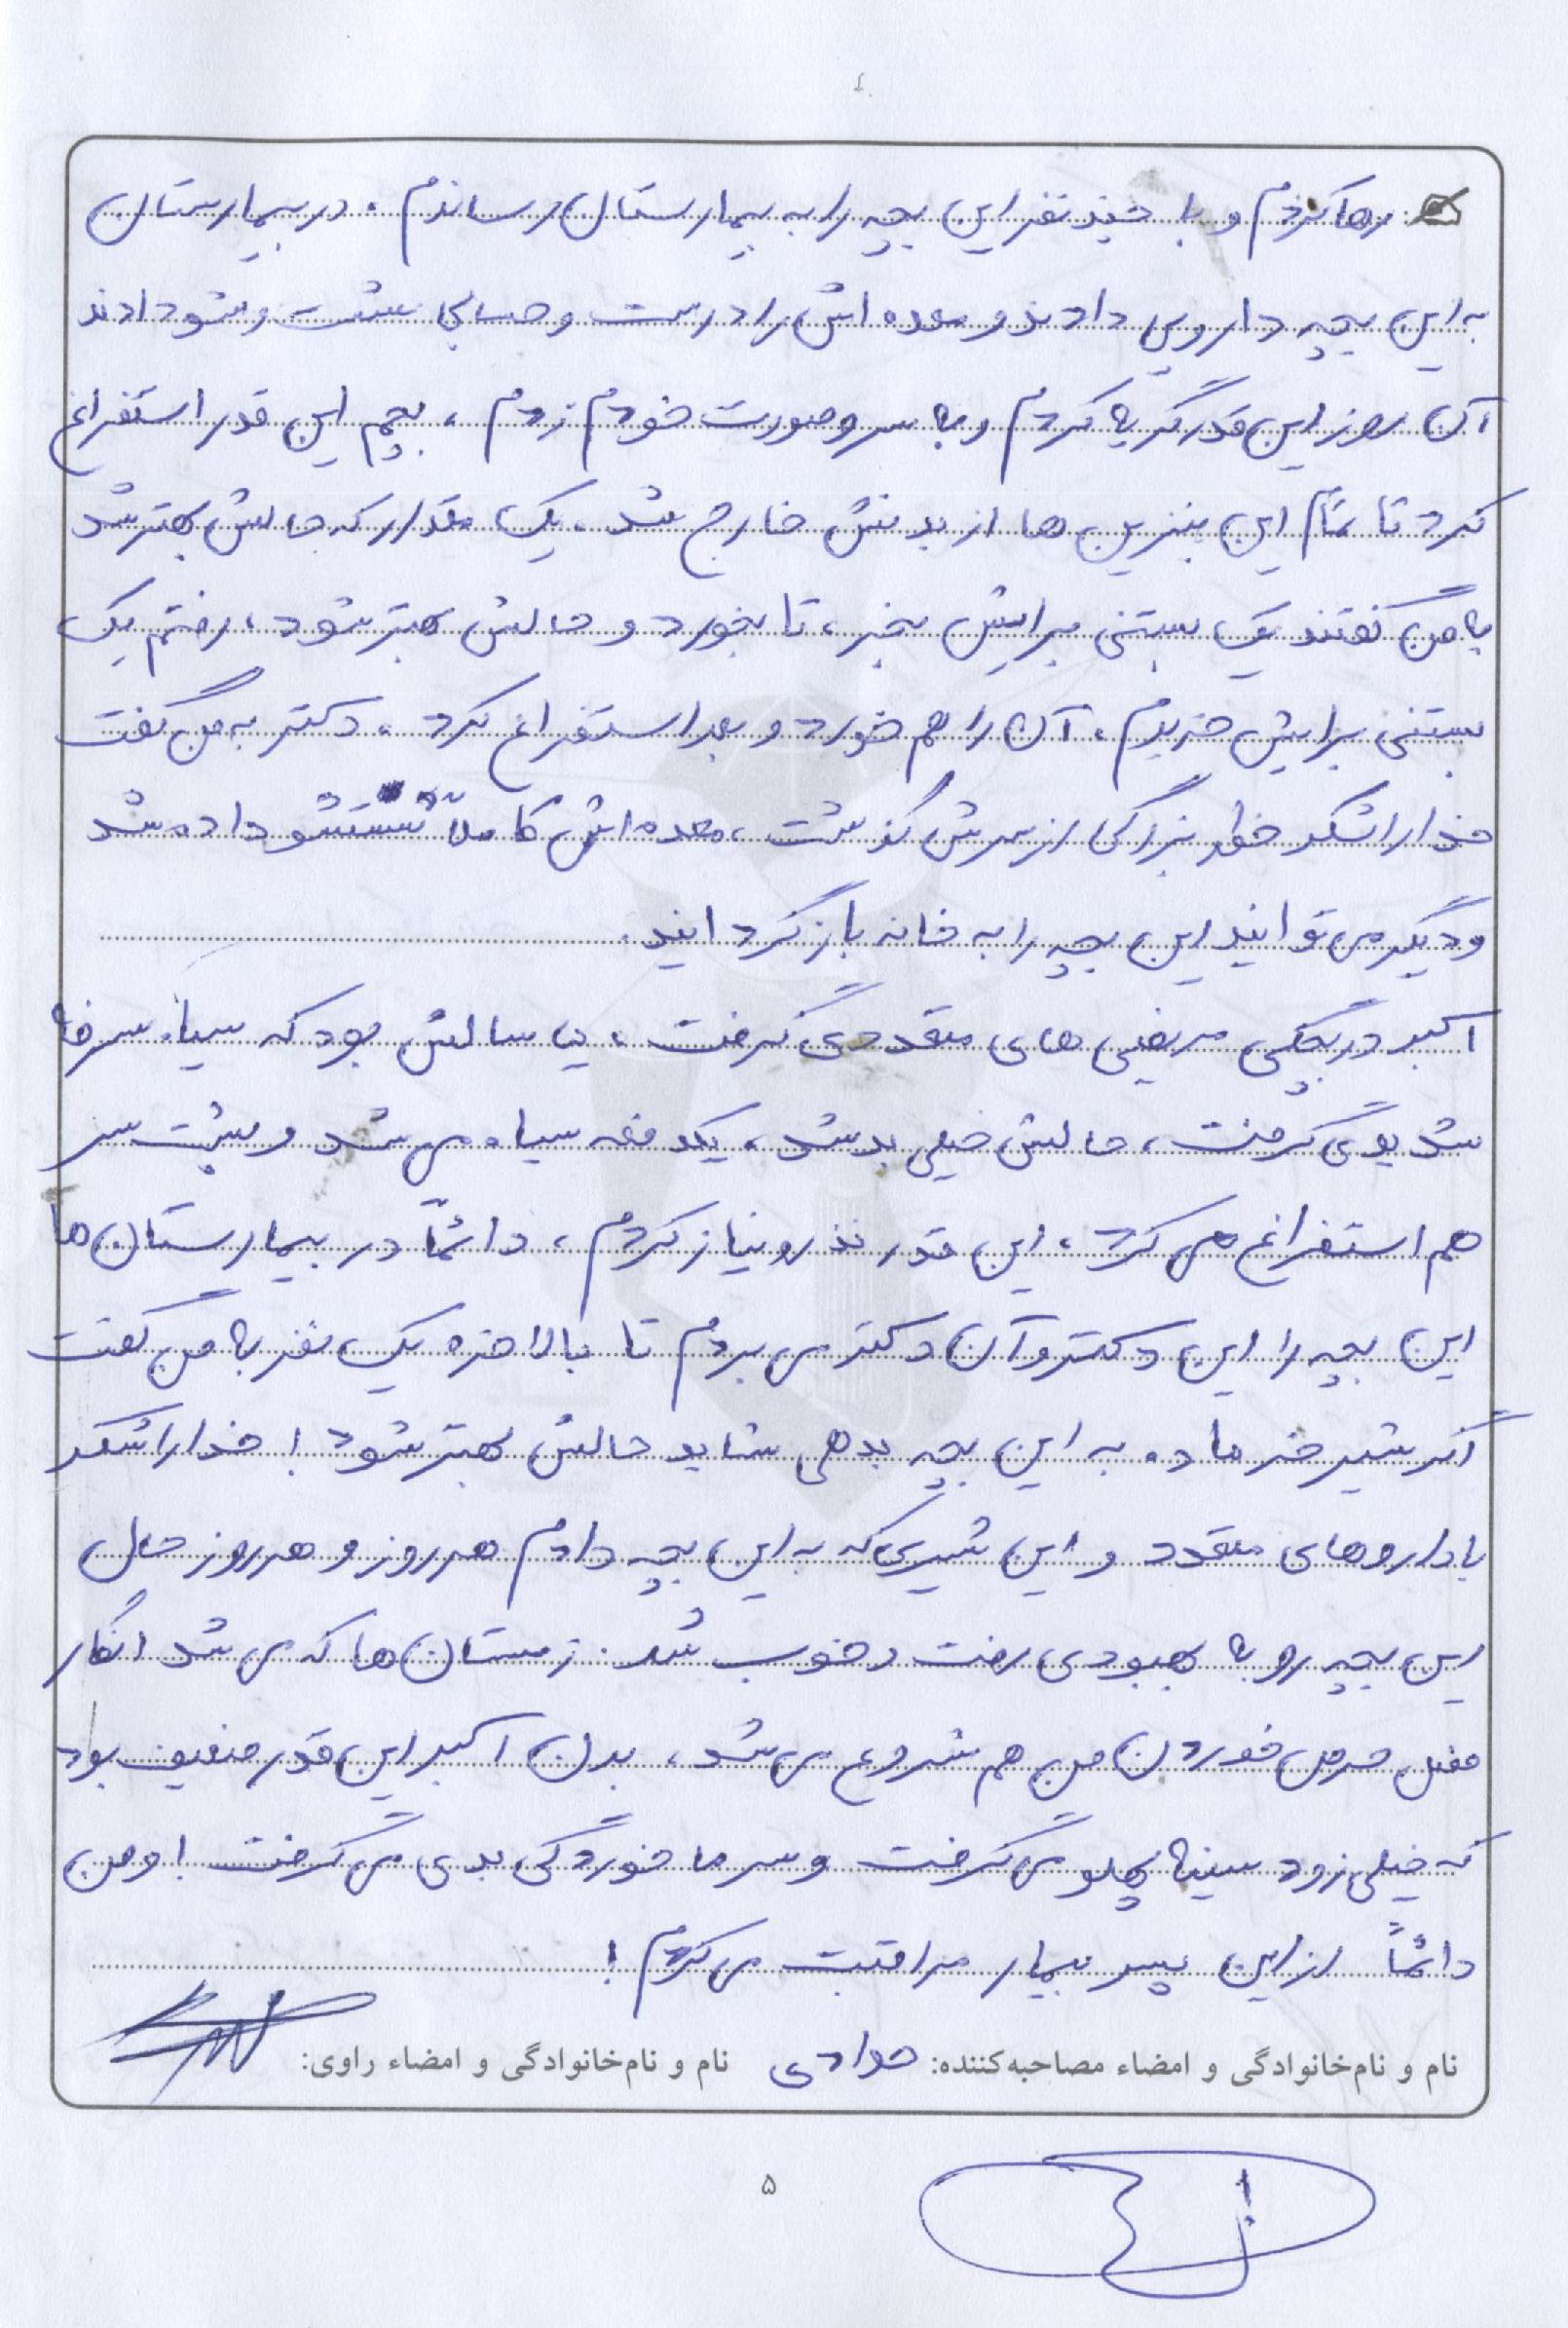 رها کردم و با چند نفر این بچه را به بیمارستان رساندم. در بیمارستان
به این بچه دارویی دادند و معده اش را درست و حسابی شست و شو دادند
آن روز این قدر گریه کردم و به سر و صورت خودم زدم، بچم این قدر استفراغ
کرد تا تمام این بنزین ها از بدنش خارج شد. یک مقدار که حالش بهتر شد
به من گفتند یک بستنی برایش بخر، تا بخورد و حالش بهتر شود، رفتم یک
بستنی برایش خریدم، آن را هم خورد و بعد استفراغ کرد. دکتر به من گفت
خدا را شکر خطر بزرگی از سرش گذشت، معده اش کاملاً شستشو داده شد
و دیگر می توانید این بچه را به خانه بازگردانید.
اکبر در بچگی مریضی های متعددی گرفت، یه سالش بود که سیاه سرفه
شدیدی گرفت، حالش خیلی بد شد، یکدفعه سیاه می شد و پشت سر
هم استفراغ می کرد، این قدر نذر و نیاز کردم، دائماً در بیمارستان ها
این بچه را این دکتر و آن دکتر می بردم تا بالاخره یک نفر به من گفت
اگر شیر خر ماده به این بچه بدهی شاید حالش بهتر شود! خدا را شکر
با داروهای متعدد و این شیری که به این بچه دادم هر روز و هر روز حال
این بچه رو به بهبودی رفت و خوب شد. زمستان ها که می شد انگار
فصل حرص خوردن من هم شروع می شد، بدن اکبر این قدر ضعیف بود
که خیلی زود سینه پهلو می گرفت و سرما خوردگی بدی می گرفت! و من
دائماً از این پسر بیمار مراقبت می کردم!
نام و نام‌خانوادگی و امضاء مصاحبه‌کننده: جوادی نام و نام‌خانوادگی و امضاء راوی:
۵